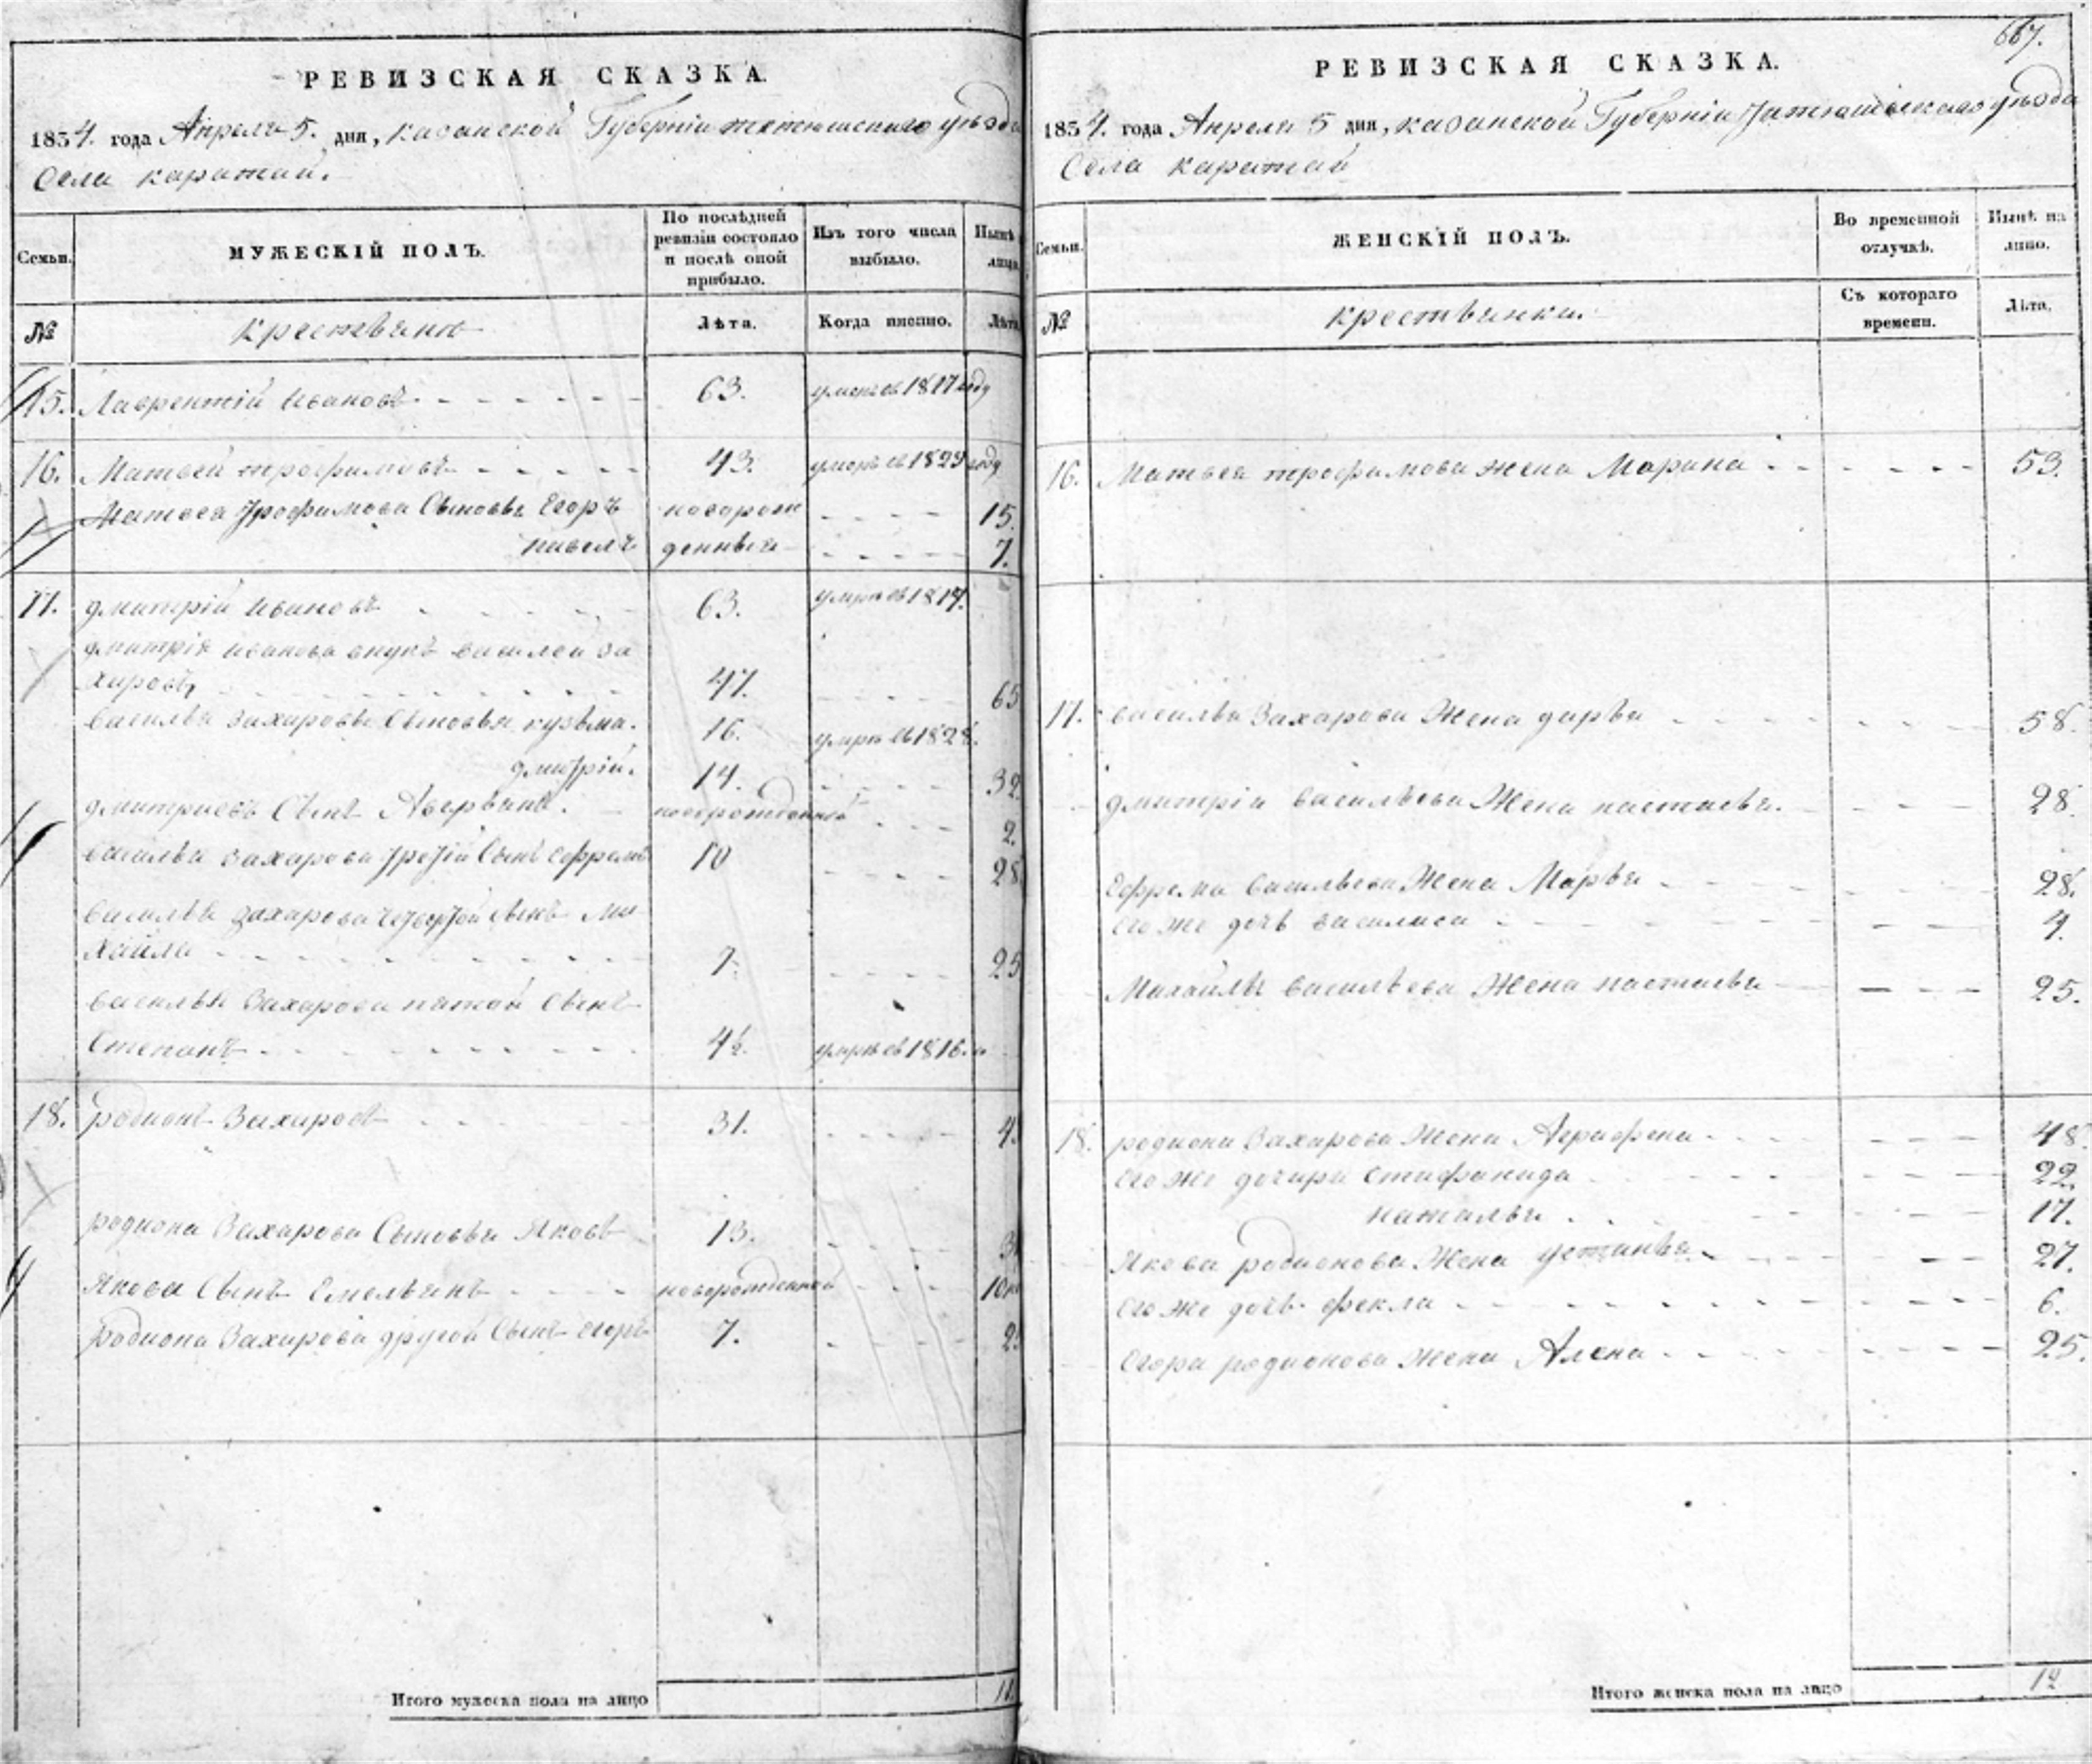 РЕВИЗСКАЯ СКАЗКА.
1834. года Апреля 5. дня, казанской Губернiи тетюшскаго уезда
Села каратай.
Семьи.
МУЖЕСКIЙ ПОЛЪ.
По послѣдней ревизiи состояло и послѣ оной прибыло.
Изъ того числа выбыло.
Нынѣ лицо
№
крестьяне
Лѣта.
Когда именно.
Лѣта
15. Лаврентiй Ивановъ 63. умеръ въ 1817 году
16. Матвей трофимовъ 43. умеръ въ 1829 году
Матвея Трофимова Сыновья Егоръ новорож 15.
павелъ денныя 7.
17. дмитрiй Ивановъ 63. умре въ 1817.
дмитрiя Иванова внукъ василей за
харовъ 47. 65
василья Захарова Сыновья кузьма. 16. умре въ 1828.
дмитрiй. 14. 32
дмитриевъ Сынъ Аверьянъ. новорожденной 2.
василья Захарова третiй Сынъ ефремъ 10 28
василья Захарова четвертой сынъ Ми
хайла 7. 25
василья Захарова пятой Сынъ
Степанъ 4½. умре въ 1816.
18. родионъ Захаровъ 31. 4
родиона Захарова Сыновья Яковъ 13. 3
Якова Сынъ Емельянъ новорожденной 10
родиона Захарова другой Сынъ егоръ 7. 2
Итого мужеска пола на лицо 11
667.
РЕВИЗСКАЯ СКАЗКА.
1834. года Апреля 5 дня, казанской Губернiи Тетюшскаго уезда
Села каратай
Семьи.
ЖЕНСКIЙ ПОЛЪ.
Во временной отлучкѣ.
Нынѣ на лицо.
№
крестьянки.
Съ котораго времени.
Лѣта.
16. Матвея трофимова жена Марина 53.
17. василья Захарова Жена дарья 58.
дмитрiя васильева Жена настасья. 28.
Ефрема васильева Жена Марья 28.
его же дочь василиса 4.
Михайлы васильева Жена настасья 25.
18. родиона Захарова Жена Аграфена 48.
его же дочери Стефанида 22.
наталья 17.
Якова родионова Жена устинья 27.
его же дочь фекла 6.
егора родионова Жена Алена 25.
Итого женска пола на лицо 12